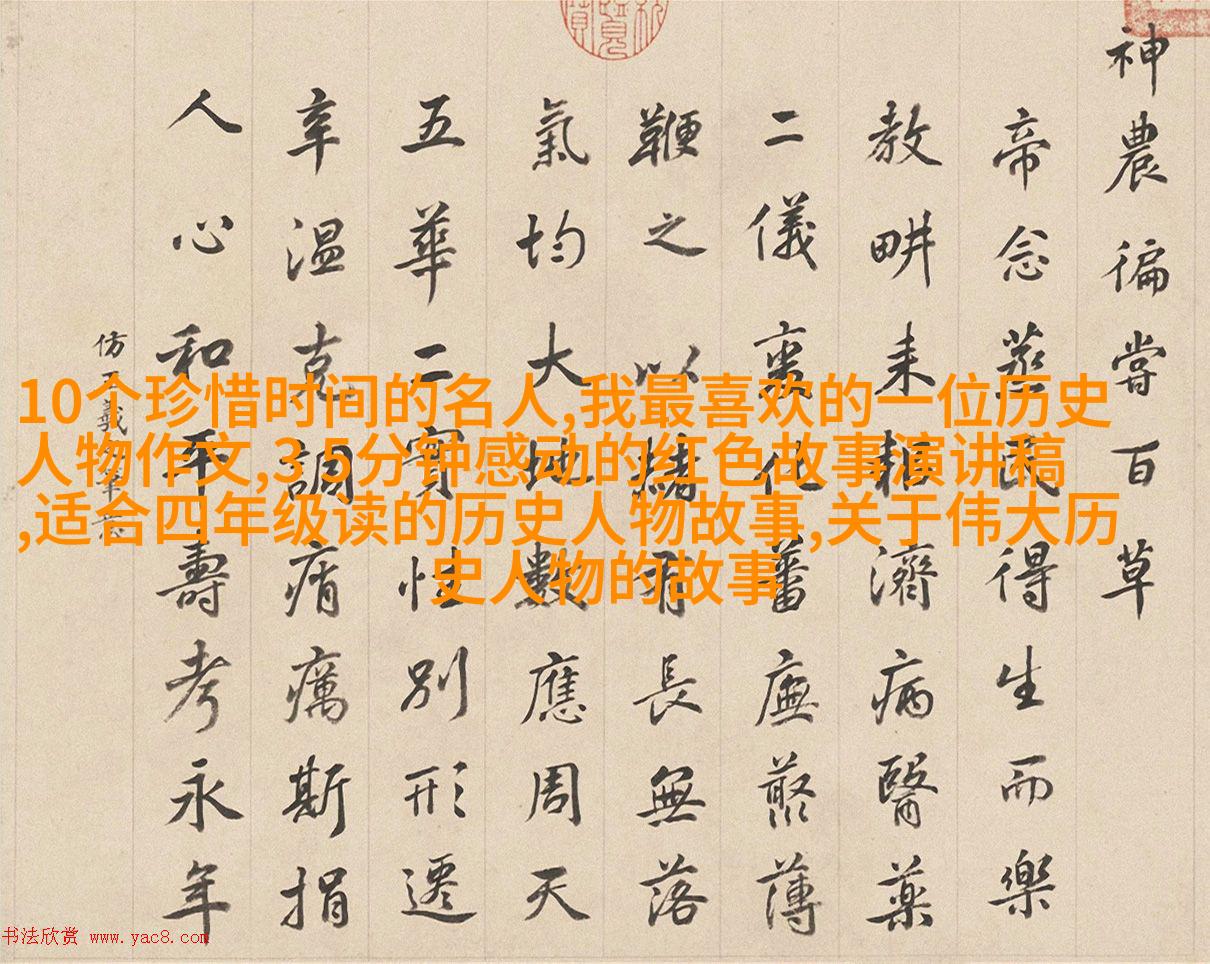 神農徧嘗百草
帝念蒸民得生而樂
教畊耒耜濟病醫藥
二儀化蕃廡藂薄
鞭之以有長無落
氣均大地數應周天
五華二實性別形遷
辛温克調痟癘斯捐
人心和平壽考永年
仿羲
10个珍惜时间的名人,我最喜欢的一位历史
人物作文,3 5分钟感动的红色故事演讲稿
,适合四年级读的历史人物故事,关于伟大历
史人物的故事
书法欣赏 www.yac8.com